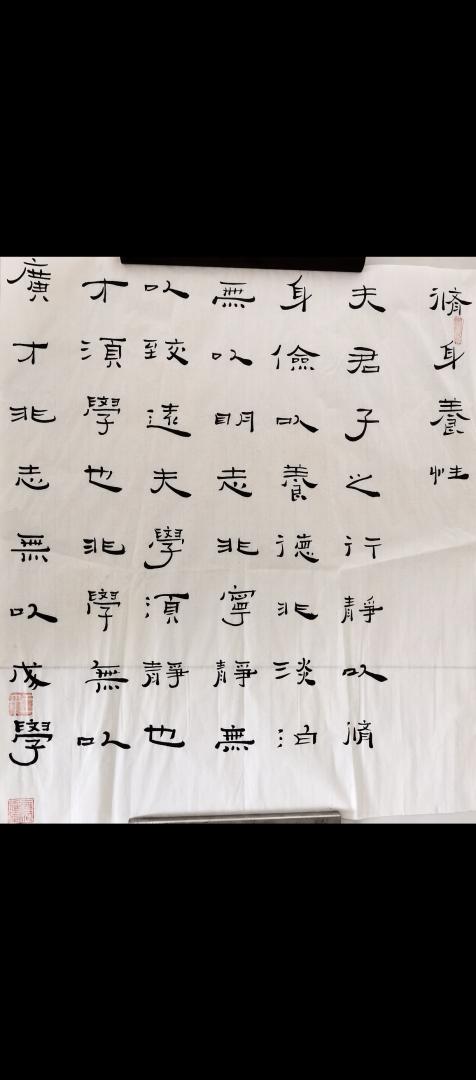 脩身養性
夫君子之行靜以脩
身儉以養德非淡泊
無以明志非寧靜無
以致遠夫學須靜也
才須學也非學無以
廣才非志無以成學